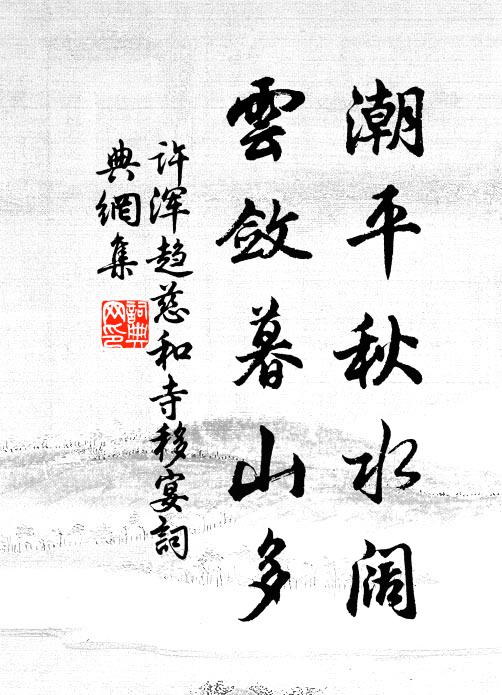 潮平秋水阔
雲斂暮山多
许浑趋慈和寺移宴詞
典網集
詞典网印